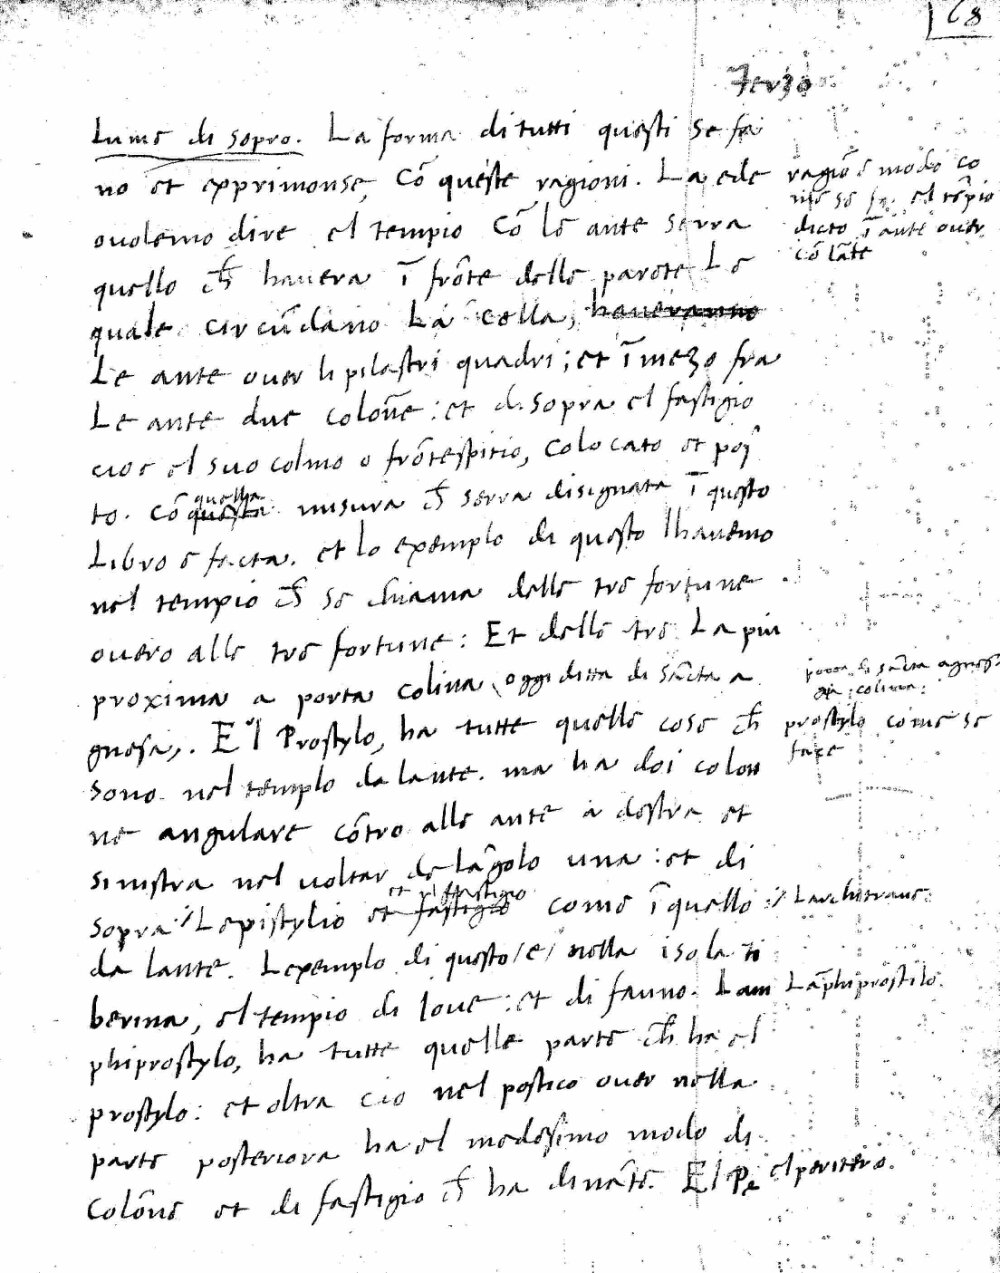 68
Terzo
Lume di sopro. La forma di tutti questi se fa
no et exprimonse, cō queste ragioni. La ede
ovolemo dire el tempio cō le ante serra
quello ch̄ havera ī frōte delle parete Le
quale circūdano La cella, haveranno
Le ante over li pilastri quadri; et ī mezo fra
Le ante due colōne: et di sopra el fastigio
cioe el suo colmo o frōtespitio, colocato et pos
to. cō questa quella misura ch̄ serra disignata ī questo
Libro e facta. et lo exemplo di questo lhavemo
nel tempio ch̄ se chiama delle tre fortune
overo alle tre fortune: Et delle tre La piu
proxima a porta colina, oggi ditta di sācta a
gnesa,. El Prostylo, ha tutte quelle cose ch̄
sono nel templo da lante. ma ha doi colon
ne angulare cōtro alle ante a destra et
sinistra nel voltar de lāgolo una: et di
sopra // Lepistylio et fastigio et il ffastigio come ī quello
da lante. Lexemplo di questo /e/ nella isola ti
berina, el tempio di Iove: et di fauno. Lam
phiprostylo, ha tutte quelle parte ch̄ ha el
prostylo: et oltra cio nel postico over nella
parte posteriora ha el medesimo modo di
Colōne et di fastigio ch̄ ha dināte. El Pe
ragiōe modo co
me se fa el tēpio
dicto ī ante over
cō lāte
porta di sācta agnesa
gia colina:
prostylo come se
face
// Larchitrave:
Lāphiprostilo.
el peritero.